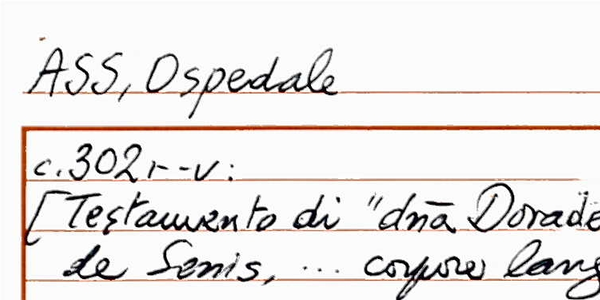 ASS, Ospedale
c. 302r-v:
[Testamento di "dnā Dorade
de Senis, ... corpore lang